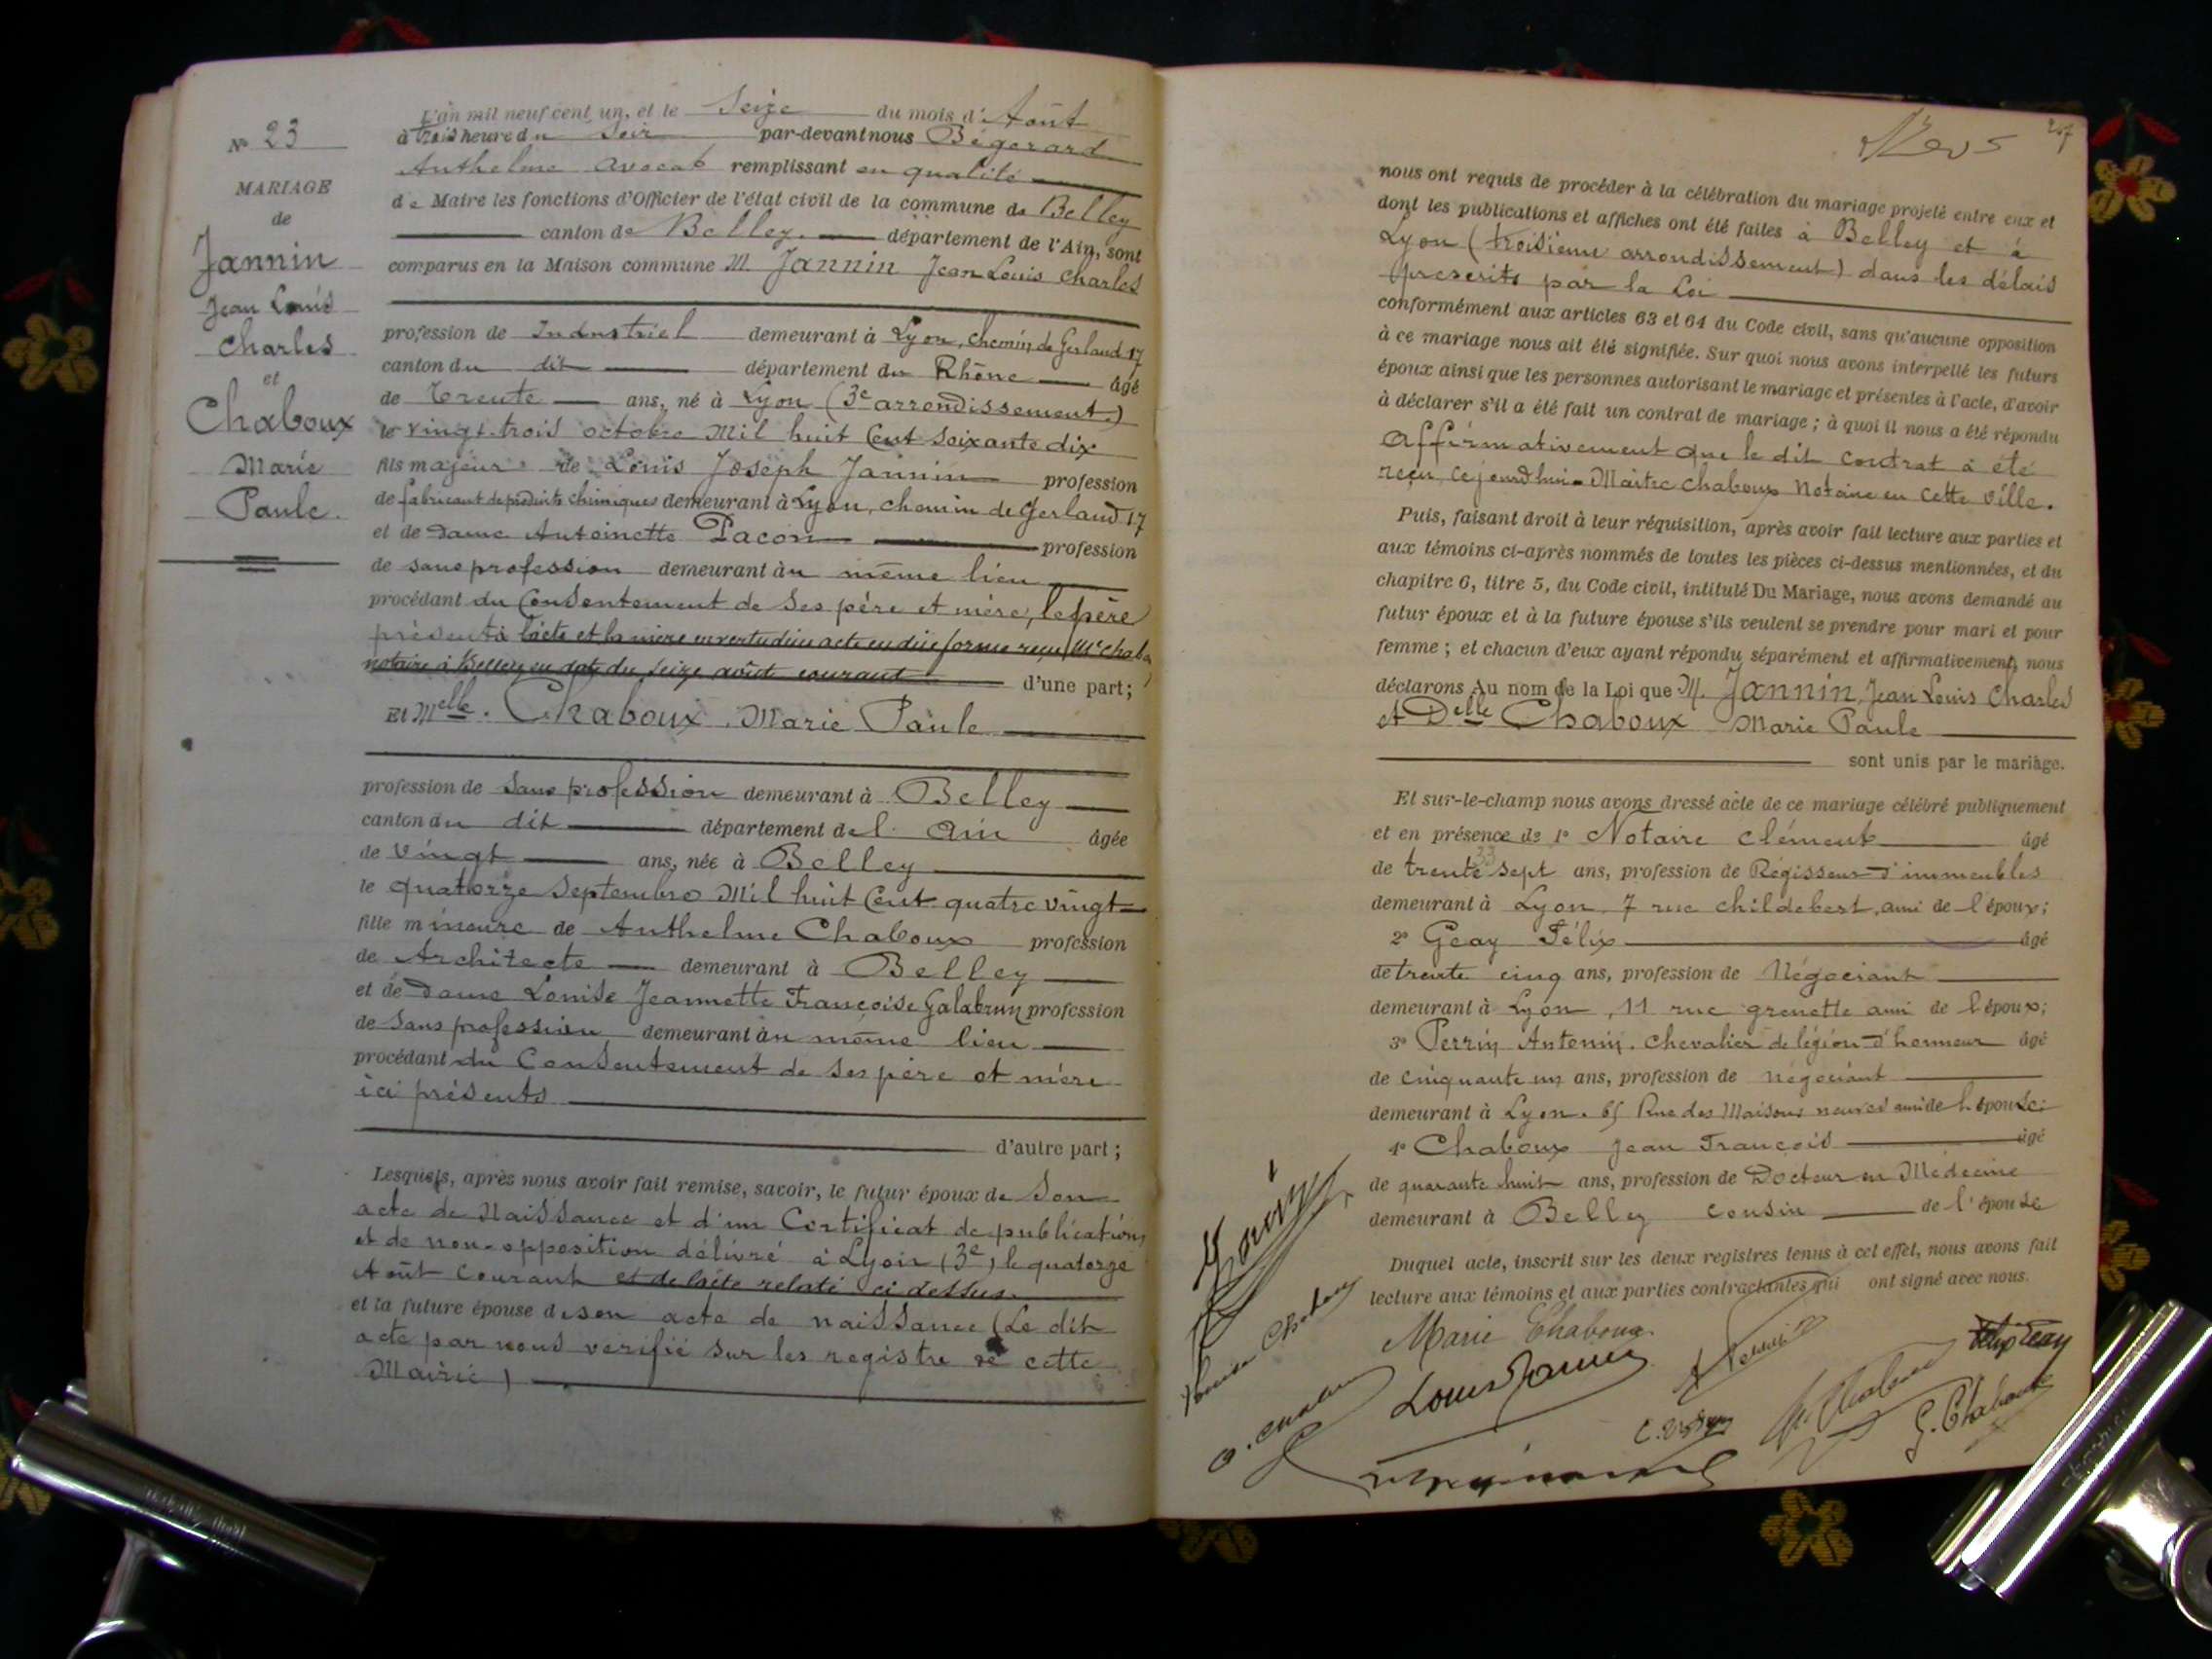 N° 23
MARIAGE
de
Jannin
Jean Louis
Charles
et
Chaboux
Marie
Paule.
L'an mil neuf cent un, et le Seize du mois d'Août
à trois heure du Soir par-devant nous Bégerard
Anthelme avocat remplissant en qualité
de Maire les fonctions d'Officier de l'état civil de la commune de Belley
canton de Belley. département de l'Ain, sont
comparus en la Maison commune M. Jannin Jean Louis Charles
profession de Industriel demeurant à Lyon, Chemin de Gerland 17
canton du dit département du Rhône âgé
de Trente ans, né à Lyon (3e arrondissement)
le vingt-trois octobre Mil huit Cent Soixante dix
fils majeur de Louis Joseph Jannin profession
de fabricant de produits chimiques demeurant à Lyon, chemin de Gerland 17
et de Dame Antoinette Pacon profession
de sans profession demeurant au même lieu
procédant du Consentement de Ses père et mère, le père
présent à l'acte et la mère en vertu d'un acte en due forme reçu Me Chaboux
notaire à Belley en date du seize août courant d'une part;
Et Melle. Chaboux Marie Paule
profession de Sans profession demeurant à Belley
canton du dit département de l'Ain âgée
de Vingt ans, née à Belley
le quatorze Septembre Mil huit Cent quatre vingt
fille mineure de Anthelme Chaboux profession
de Architecte demeurant à Belley
et de Dame Louise Jeannette Françoise Galabrun profession
de Sans profession demeurant au même lieu
procédant du Consentement de Ses père et mère
ici présents
d'autre part;
Lesquels, après nous avoir fait remise, savoir, le futur époux de Son
acte de Naissance et d'un Certificat de publication
et de non-opposition délivré à Lyon (3e) le quatorze
Août Courant et de l'acte relaté ci dessus.
et la future épouse de son acte de naissance (Le dit
acte par nous vérifié sur les registre de cette
Mairie)
247
nous ont requis de procéder à la célébration du mariage projeté entre eux et
dont les publications et affiches ont été faites à Belley et à
Lyon (troisième arrondissement) dans les délais
prescrits par la Loi
conformément aux articles 63 et 64 du Code civil, sans qu'aucune opposition
à ce mariage nous ait été signifiée. Sur quoi nous avons interpellé les futurs
époux ainsi que les personnes autorisant le mariage et présentes à l'acte, d'avoir
à déclarer s'il a été fait un contrat de mariage; à quoi il nous a été répondu
Affirmativement que le dit contrat à été
reçu cejourd'hui Maitre Chaboux Notaire en cette ville.
Puis, faisant droit à leur réquisition, après avoir fait lecture aux parties et
aux témoins ci-après nommés de toutes les pièces ci-dessus mentionnées, et du
chapitre 6, titre 5, du Code civil, intitulé Du Mariage, nous avons demandé au
futur époux et à la future épouse s'ils veulent se prendre pour mari et pour
femme; et chacun d'eux ayant répondu séparément et affirmativement, nous
déclarons Au nom de la Loi que M. Jannin, Jean Louis Charles
et Delle Chaboux Marie Paule
sont unis par le mariage.
Et sur-le-champ nous avons dressé acte de ce mariage célébré publiquement
et en présence de 1° Notaire Clément âgé
de trente sept ans, profession de Régisseur d'immeubles
demeurant à Lyon, 7 rue childebert, ami de l'époux;
2° Geay Félix âgé
de trente cinq ans, profession de Négociant
demeurant à Lyon, 11 rue grenette ami de l'époux;
3° Perrin Antonin. Chevalier de légion d'honneur âgé
de cinquante un ans, profession de négociant
demeurant à Lyon. 65 Rue des Maisons neuves ami de l'épouse;
4° Chaboux Jean François âgé
de quarante huit ans, profession de Docteur en Médecine
demeurant à Belley cousin de l'épouse
Duquel acte, inscrit sur les deux registres tenus à cet effet, nous avons fait
lecture aux témoins et aux parties contractantes qui ont signé avec nous.
Marie Chaboux.
Louis Jannin
Félix Geay
G. Chaboux